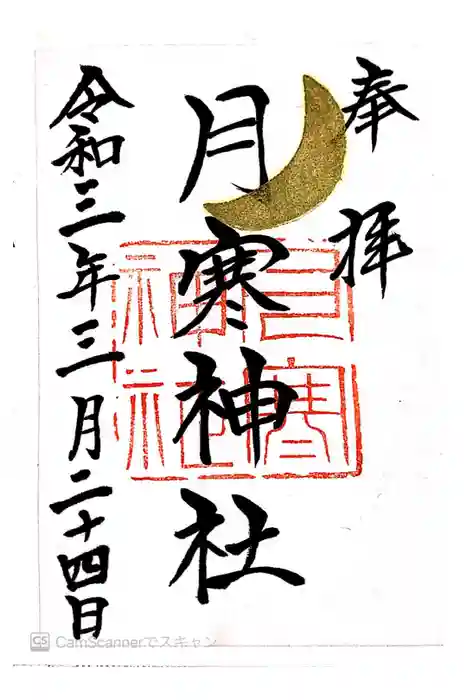 奉拝
月寒神社
月寒神社
令和三年三月二十四日
CS CamScannerでスキャン